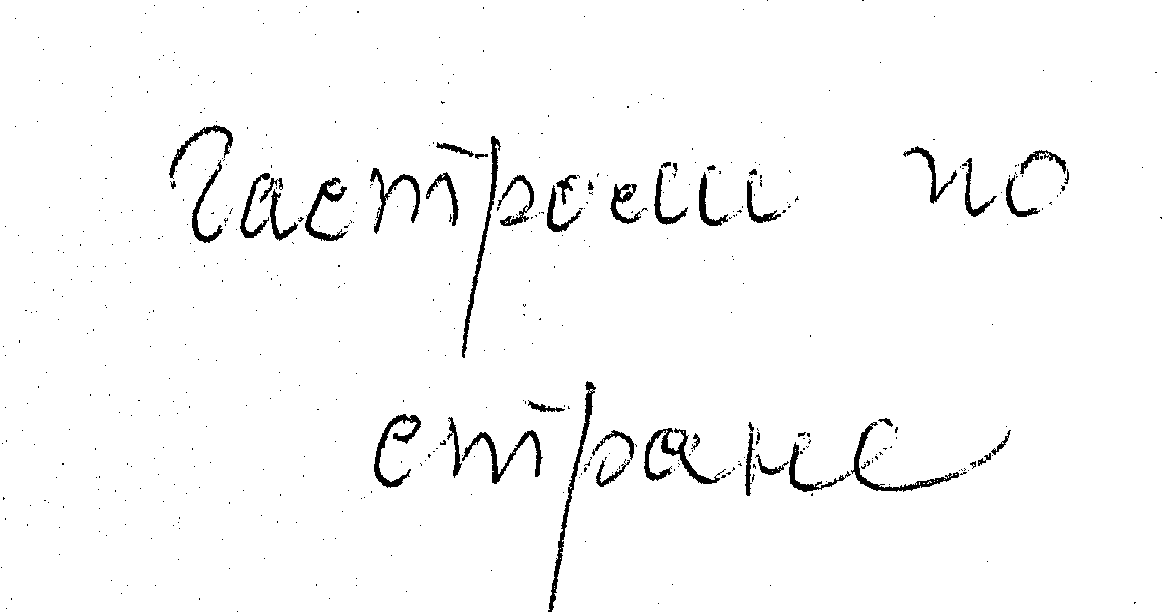 Гастроли по
стране